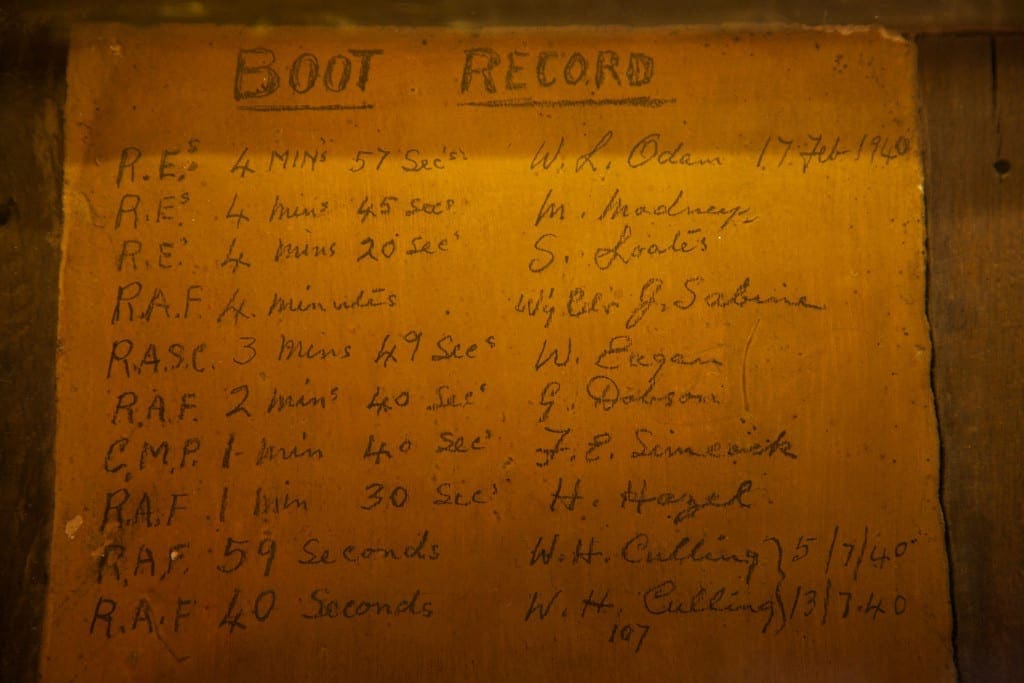 BOOT RECORD
R.E.s 4 MIN's 57 Sec's. W. L. Odam 17 Feb 1940
R.E.s 4 mins 45 Secs M.
R.E.' 4 mins 20 Sec' S. Loates
R.A.F. 4 minutes J. Sabine
R.A.S.C. 3 mins 49 Secs W. Eagan
R.A.F. 2 mins 40 Secs G. Dobson
C.M.P. 1 min 40 Sec' F. E. Simcock
R.A.F 1 min 30 Sec' H. Hazel
R.A.F. 59 Seconds W. H. Culling } 5/7/40
R.A.F 40 Seconds W. H. Culling } 13/7.40
107